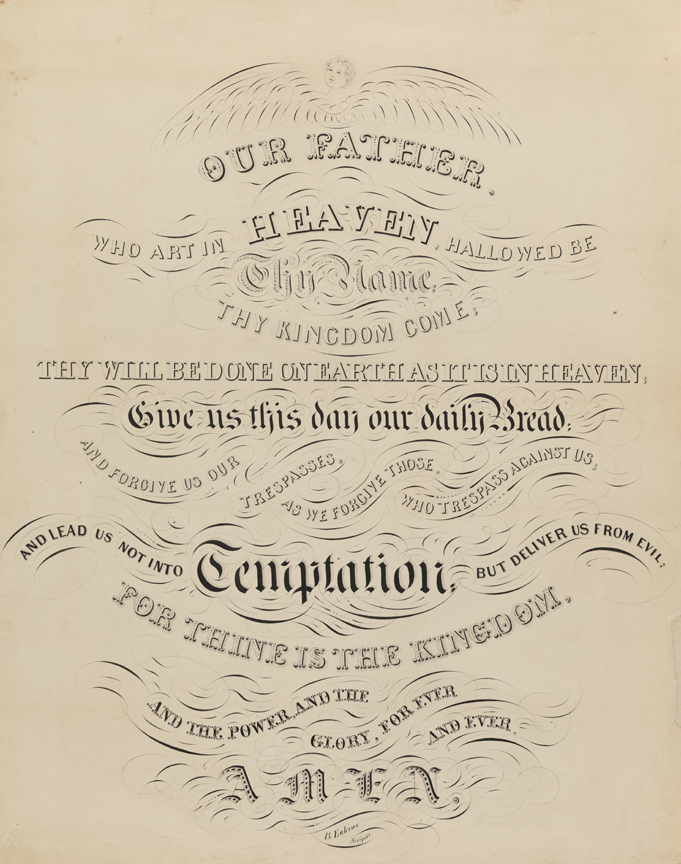 OUR FATHER,
WHO ART IN HEAVEN, HALLOWED BE
Thy Name,
THY KINGDOM COME,
THY WILL BE DONE ON EARTH AS IT IS IN HEAVEN;
Give us this day our daily Bread;
AND FORGIVE US OUR TRESPASSES, AS WE FORGIVE THOSE, WHO TRESPASS AGAINST US;
AND LEAD US NOT INTO Temptation; BUT DELIVER US FROM EVIL;
FOR THINE IS THE KINGDOM,
AND THE POWER, AND THE GLORY, FOR EVER AND EVER.
AMEN.
B. Eakins
Script